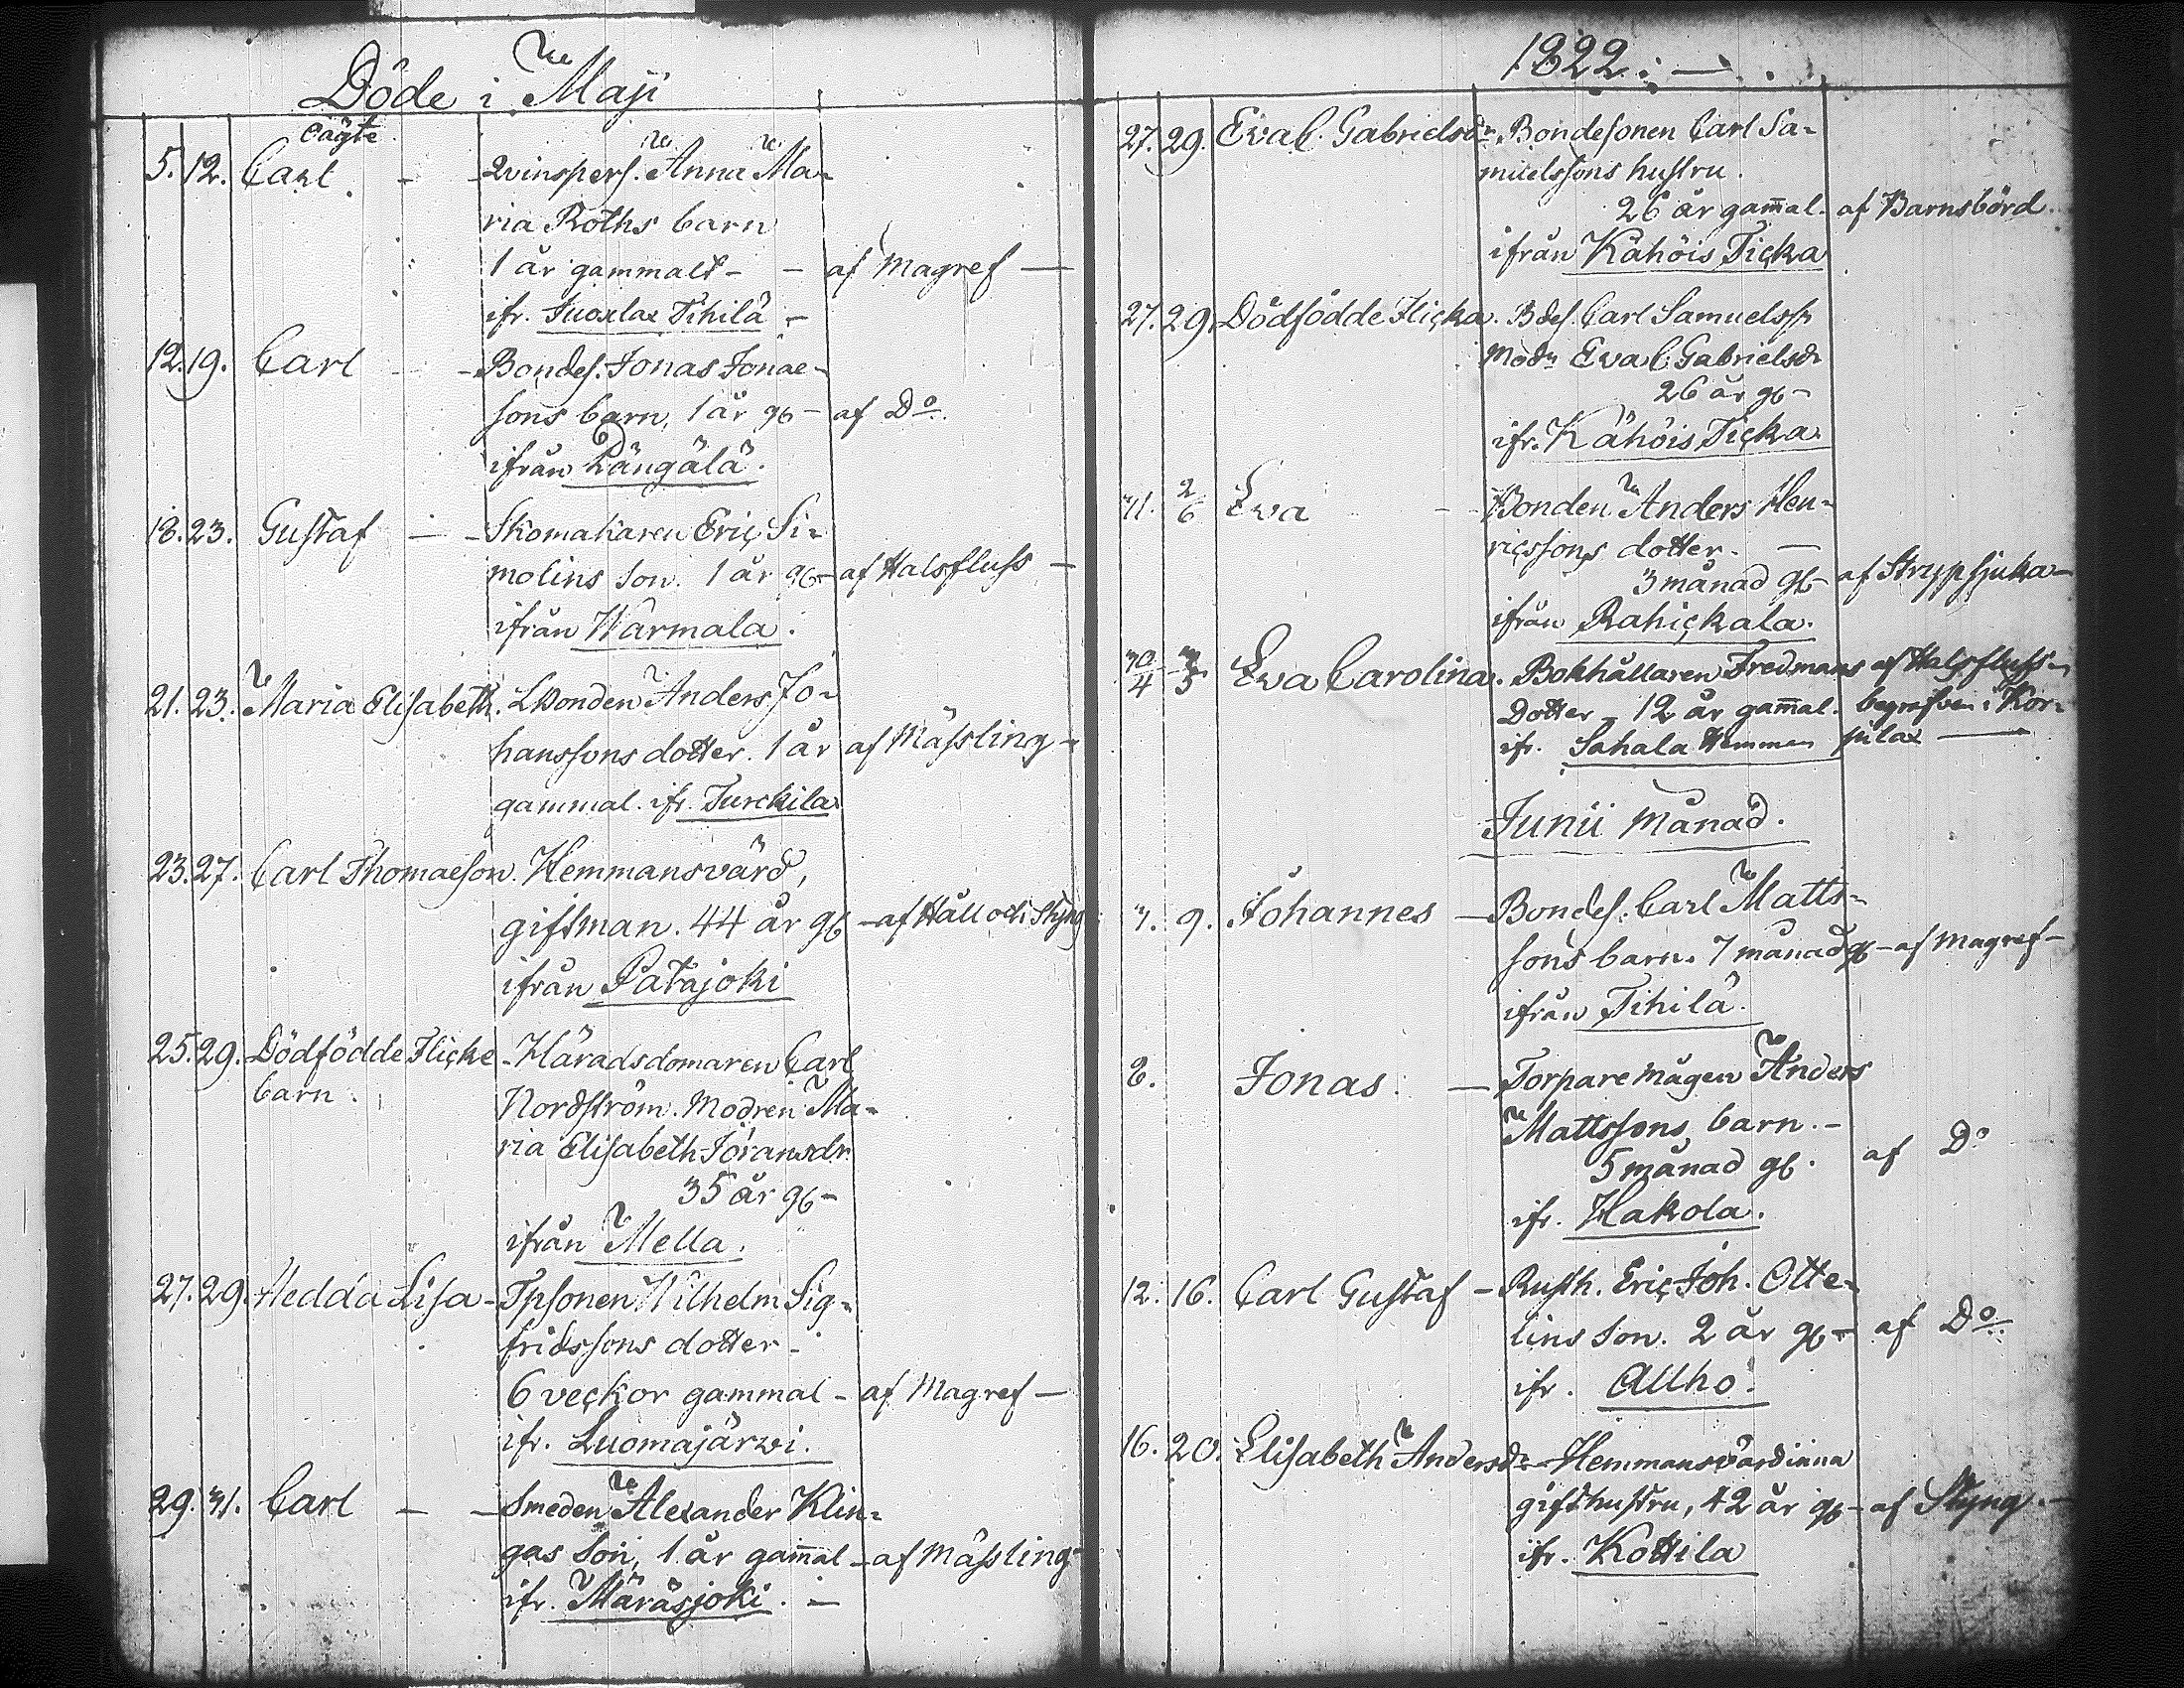 Döde i Maji
oägte
5. 12. Carl. - - Qvinspers. Anna Ma-
ria Roths barn
1 år gammalt - - af Magref -
ifr. Tihilä -
12. 19. Carl - - Bondes. Jonas Jonae-
sons barn, 1 år gl - af Do.
ifrån Längälä.
18. 23. Gustaf - - Skomakaren Eric Si-
molins Son. 1 år gl - af Halsfluss -
ifrån Warmala.
21. 23. Maria Elisabeth. LBonden Anders Jo-
hanssons dotter. 1 år af Mässling -
gammal. ifr. Turckila
23. 27. Carl Thomaeson. Hemmansvärd,
giftman. 44 år gl - af Håll och Styng
ifrån Patajoki
25. 29. Dödfödde Flicke - Häradsdomaren Carl
barn. Nordström. Modren Ma-
ria Elisabeth Jöransdr.
35 år gl -
ifrån Mella.
27. 29. Hedda Lisa - Tpsonen Wilhelm Sig-
fridssons dotter -
6 veckor gammal - af Magref -
ifr. Luomajärwi.
29. 31. Carl - - Smeden Alexander Klin-
gas Son, 1 år gam̄al - af Mässling -
ifr. Märäsjoki. -
1822: -.
27. 29. Eva C. Gabrielsdr. Bondesonen Carl Sa-
muelssons hustru.
26 år gam̄al. af Barnsbörd.
ifrån Kähöis Ticka
27. 29. Dödfödde Flicka. Bdes. Carl Samuelss.
Modr Eva C. Gabrielsdr
26 år gl -
ifr. Kähöis Ticka.
31. 2/6 Eva - - Bonden Anders Hen-
ricssons dotter. -
3 månad gl - af Strypsjuka -
ifrån Rahickala.
30/4 3/5 Eva Carolina. Bokhållaren Fredmans af Halsfluss -
Dotter - 12 år gam̄al. begrafven i Kor-
ifr. Sahala Hemman pilax -
Junii Månad.
3. 9. Johannes - Bondes. Carl Matts-
sons barn. 7 månad gl - af Magref -
ifrån Tihilä.
8. Jonas. - Torpare mågen Anders
Mattssons barn. -
5 månad gl. af Do
ifr. Hakola.
12. 16. Carl Gustaf - Rusth. Eric Joh. Otte-
lins Son. 2 år gl - af Do.
ifr. Allho.
16. 20. Elisabeth Andersdr - Hemmansvärdinna
gifthustru, 42 år gl - af Styng. -
ifr. Kottila